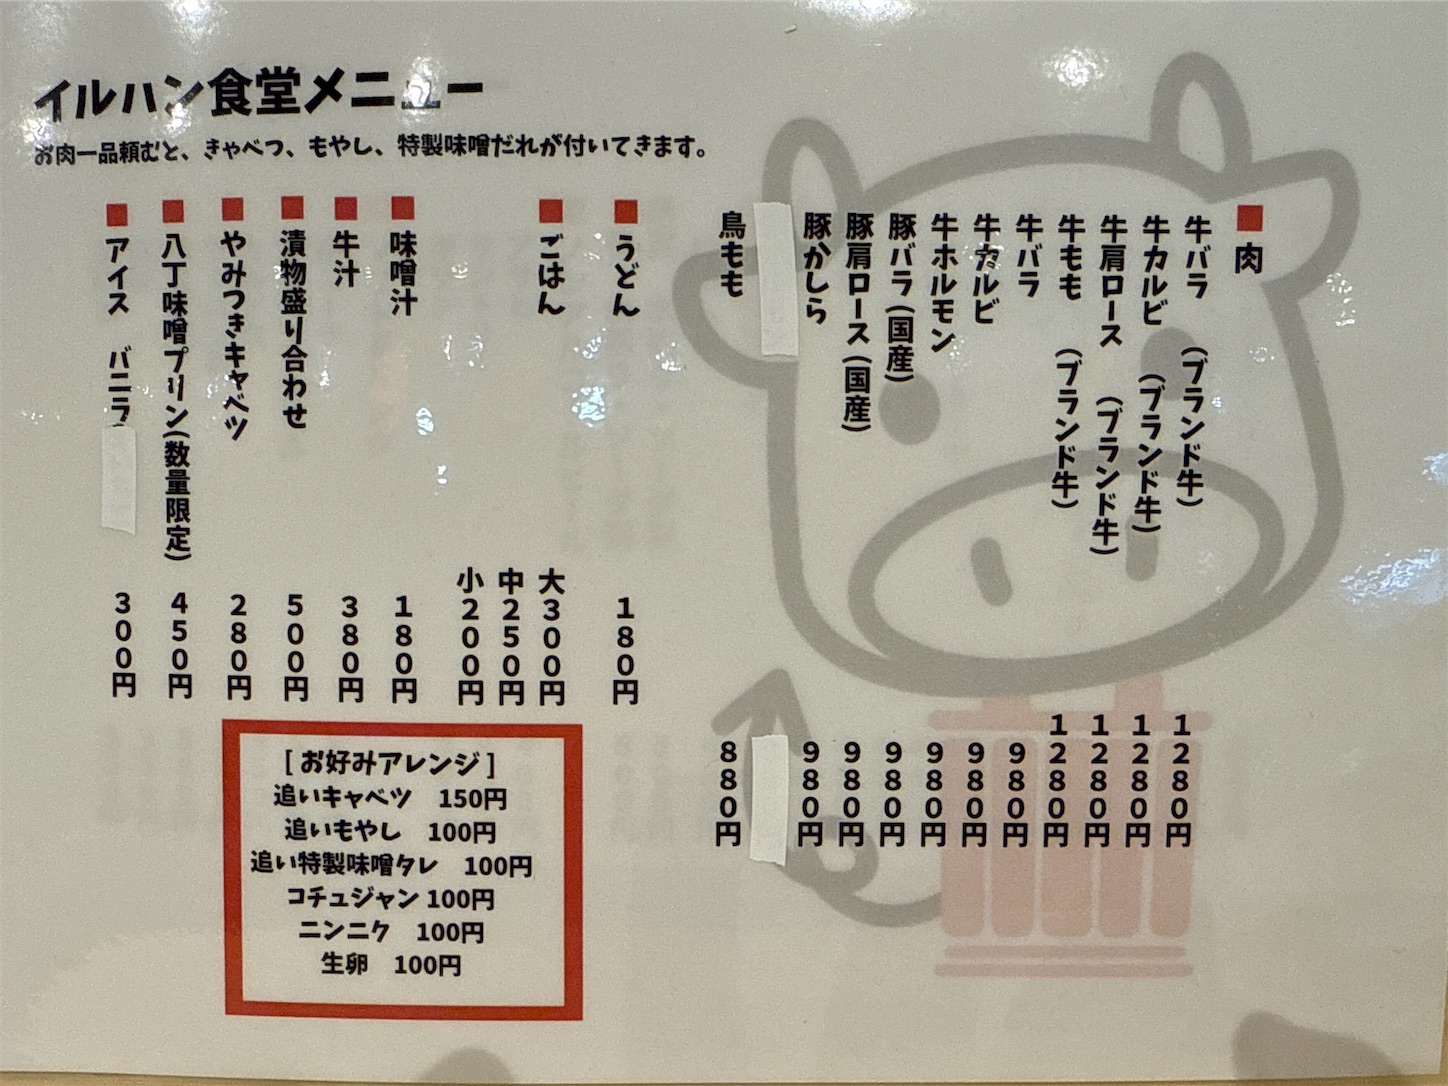 イルハン食堂メニュー
お肉一品頼むと、きゃべつ、もやし、特製味噌だれが付いてきます。
■肉
牛バラ（ブランド牛） 1280円
牛カルビ（ブランド牛） 1280円
牛肩ロース（ブランド牛） 1280円
牛もも（ブランド牛） 1280円
牛バラ 980円
牛カルビ 980円
牛ホルモン 980円
豚バラ（国産） 980円
豚肩ロース（国産） 980円
豚かしら 980円
鳥もも 880円
■うどん 180円
■ごはん 大300円
中250円
小200円
■味噌汁 180円
■牛汁 380円
■漬物盛り合わせ 500円
■やみつきキャベツ 280円
■八丁味噌プリン（数量限定） 450円
■アイス バニラ 300円
[お好みアレンジ]
追いキャベツ 150円
追いもやし 100円
追い特製味噌タレ 100円
コチュジャン 100円
ニンニク 100円
生卵 100円